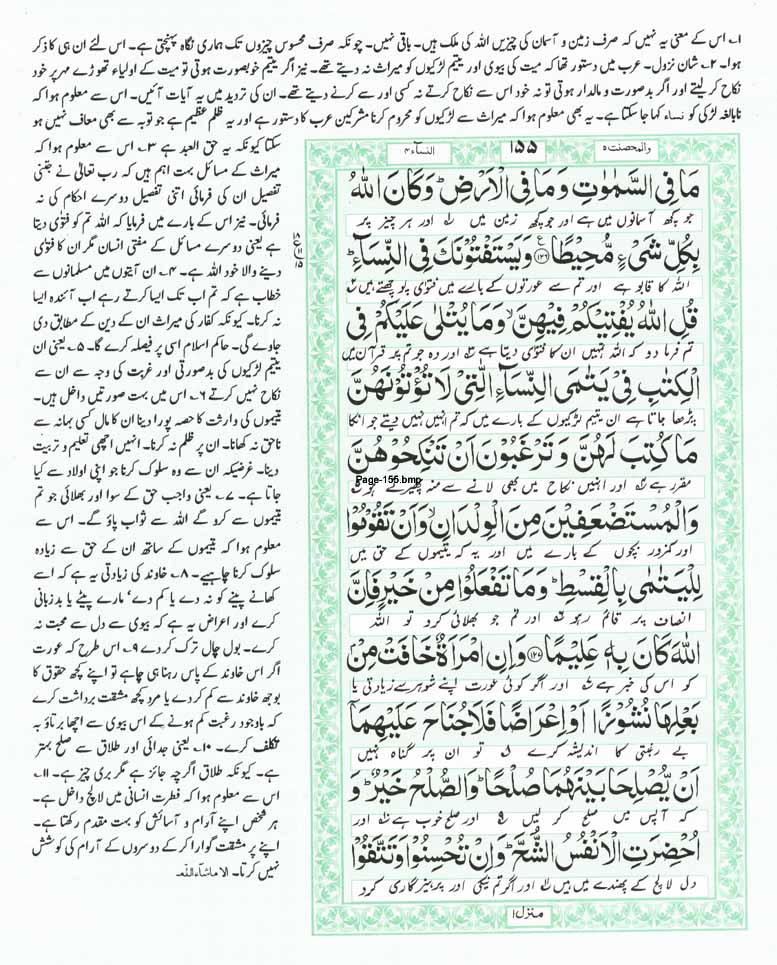 ۱۔ اس کے معنی یہ نہیں کہ صرف زمین و آسمان کی چیزیں اللہ کی ملک ہیں۔ باقی نہیں۔ چونکہ صرف محسوس چیزوں تک ہماری نگاہ پہنچتی ہے۔ اس لئے ان ہی کا ذکر
ہوا۔ ۲۔ شان نزول۔ عرب میں دستور تھا کہ میت کی بیوی اور یتیم لڑکیوں کو میراث نہ دیتے تھے۔ نیز اگر یتیم خوبصورت ہوتی تو میت کے اولیاء تھوڑے مہر پر خود
نکاح کر لیتے اور اگر بدصورت و مالدار ہوتی تو نہ خود اس سے نکاح کرتے نہ کسی اور سے کرنے دیتے تھے۔ ان کی تردید میں یہ آیات آئیں۔ اس سے معلوم ہوا کہ
نابالغہ لڑکی کو نساء کہا جا سکتا ہے۔ یہ بھی معلوم ہوا کہ میراث سے لڑکیوں کو محروم کرنا مشرکین عرب کا دستور ہے اور یہ ظلم عظیم ہے جو توبہ سے بھی معاف نہیں ہو
سکتا کیونکہ یہ حق العبد ہے ۳۔ اس سے معلوم ہوا کہ
میراث کے مسائل بہت اہم ہیں کہ رب تعالٰی نے جتنی
تفصیل ان کی فرمائی اتنی تفصیل دوسرے احکام کی نہ
فرمائی۔ نیز اس کے بارے میں فرمایا کہ اللہ تم کو فتوٰی دیتا
ہے یعنی دوسرے مسائل کے مفتی انسان مگر ان کا فتوٰی
دینے والا خود اللہ ہے۔ ۴۔ ان آیتوں میں مسلمانوں سے
خطاب ہے کہ تم اب تک ایسا کرتے رہے اب آئندہ ایسا
نہ کرنا۔ کیونکہ کفار کی میراث ان کے دین کے مطابق دی
جاوے گی۔ حاکم اسلام اسی پر فیصلہ کرے گا۔ ۵۔ یعنی ان
یتیم لڑکیوں کی بدصورتی اور غربت کی وجہ سے ان سے
نکاح نہیں کرتے ۶۔ اس میں بہت صورتیں داخل ہیں۔
یتیموں کی وارثت کا حصہ پورا دینا ان کا مال کسی بہانہ سے
ناحق نہ کھانا۔ ان پر ظلم نہ کرنا۔ انہیں اچھی تعلیم و تربیت
دینا۔ غرضیکہ ان سے وہ سلوک کرنا جو اپنی اولاد سے کیا
جاتا ہے۔ ۷۔ یعنی واجب حق کے سوا اور بھلائی جو تم
یتیموں سے کرو گے اللہ سے ثواب پاؤ گے۔ اس سے
معلوم ہوا کہ یتیموں کے ساتھ ان کے حق سے زیادہ
سلوک کرنا چاہیے۔ ۸۔ خاوند کی زیادتی یہ ہے کہ اسے
کھانے پینے کو نہ دے یا کم دے، مارے پیٹے یا بدزبانی
کرے اور اعراض یہ ہے کہ بیوی سے دل سے محبت نہ
کرے۔ بول چال ترک کر دے ۹۔ اس طرح کہ عورت
اگر اس خاوند کے پاس رہنا ہی چاہے تو اپنے کچھ حقوق کا
بوجھ خاوند سے کم کر دے یا مرد کچھ مشقت برداشت کرے
کہ باوجود رغبت کم ہونے کے اس بیوی سے اچھا برتاؤ بہ
تکلف کرے۔ ۱۰۔ یعنی جدائی اور طلاق سے صلح بہتر
ہے۔ کیونکہ طلاق اگرچہ جائز ہے مگر بری چیز ہے۔ ۱۱۔
اس سے معلوم ہوا کہ فطرت انسانی میں لالچ داخل ہے۔
ہر شخص اپنے آرام و آسائش کو بہت مقدم رکھتا ہے۔
اپنے پر مشقت گوارا کر کے دوسروں کے آرام کی کوشش
نہیں کرتا۔ الا ماشاءاللہ
والمحصنت ۵
۱۵۵
النساء ۴
مَا فِی السَّمٰوٰتِ وَمَا فِی الْاَرْضِ ؕ وَكَانَ اللّٰهُ
جو کچھ آسمانوں میں ہے اور جو کچھ زمین میں ۱ اور ہر چیز پر
بِكُلِّ شَیْءٍ مُّحِیْطًا ﴿۱۲۶﴾ وَیَسْتَفْتُوْنَكَ فِی النِّسَآءِ ؕ
اللہ کا قابو ہے اور تم سے عورتوں کے بارے میں فتویٰ پوچھتے ہیں ۲
قُلِ اللّٰهُ یُفْتِیْكُمْ فِیْهِنَّ ۙ وَمَا یُتْلٰی عَلَیْكُمْ فِی
تم فرما دو کہ اللہ تمہیں ان کا فتویٰ دیتا ہے ۳ اور وہ جو تم پر قرآن میں
الْكِتٰبِ فِیْ یَتٰمَی النِّسَآءِ الّٰتِیْ لَا تُؤْتُوْنَهُنَّ
پڑھا جاتا ہے ان یتیم لڑکیوں کے بارے میں کہ تم انہیں نہیں دیتے جو انکا
مَا كُتِبَ لَهُنَّ وَتَرْغَبُوْنَ اَنْ تَنْكِحُوْهُنَّ
Page-155.bmp
مقرر ہے ۴ اور انہیں نکاح میں بھی لانے سے منہ پھیرتے ہو ۵
وَالْمُسْتَضْعَفِیْنَ مِنَ الْوِلْدَانِ ۙ وَاَنْ تَقُوْمُوْا
اور کمزور بچوں کے بارے میں اور یہ کہ یتیموں کے حق میں
لِلْیَتٰمٰی بِالْقِسْطِ ؕ وَمَا تَفْعَلُوْا مِنْ خَیْرٍ فَاِنَّ
انصاف پر قائم رہو ۶ اور تم جو بھلائی کرو تو اللہ
اللّٰهَ كَانَ بِهٖ عَلِیْمًا ﴿۱۲۷﴾ وَاِنِ امْرَاَةٌ خَافَتْ مِنْۢ
کو اس کی خبر ہے ۷ اور اگر کوئی عورت اپنے شوہر سے زیادتی یا
بَعْلِهَا نُشُوْزًا اَوْ اِعْرَاضًا فَلَا جُنَاحَ عَلَیْهِمَاۤ
بے رغبتی کا اندیشہ کرے ۸ تو ان پر گناہ نہیں
اَنْ یُّصْلِحَا بَیْنَهُمَا صُلْحًا ؕ وَالصُّلْحُ خَیْرٌ ؕ وَ
کہ آپس میں صلح کر لیں ۹ اور صلح خوب ہے ۱۰ اور
اُحْضِرَتِ الْاَنْفُسُ الشُّحَّ ؕ وَاِنْ تُحْسِنُوْا وَتَتَّقُوْا
دل لالچ کے پھندے میں ہیں ۱۱ اور اگر تم نیکی اور پرہیزگاری کرو
منزل ۱